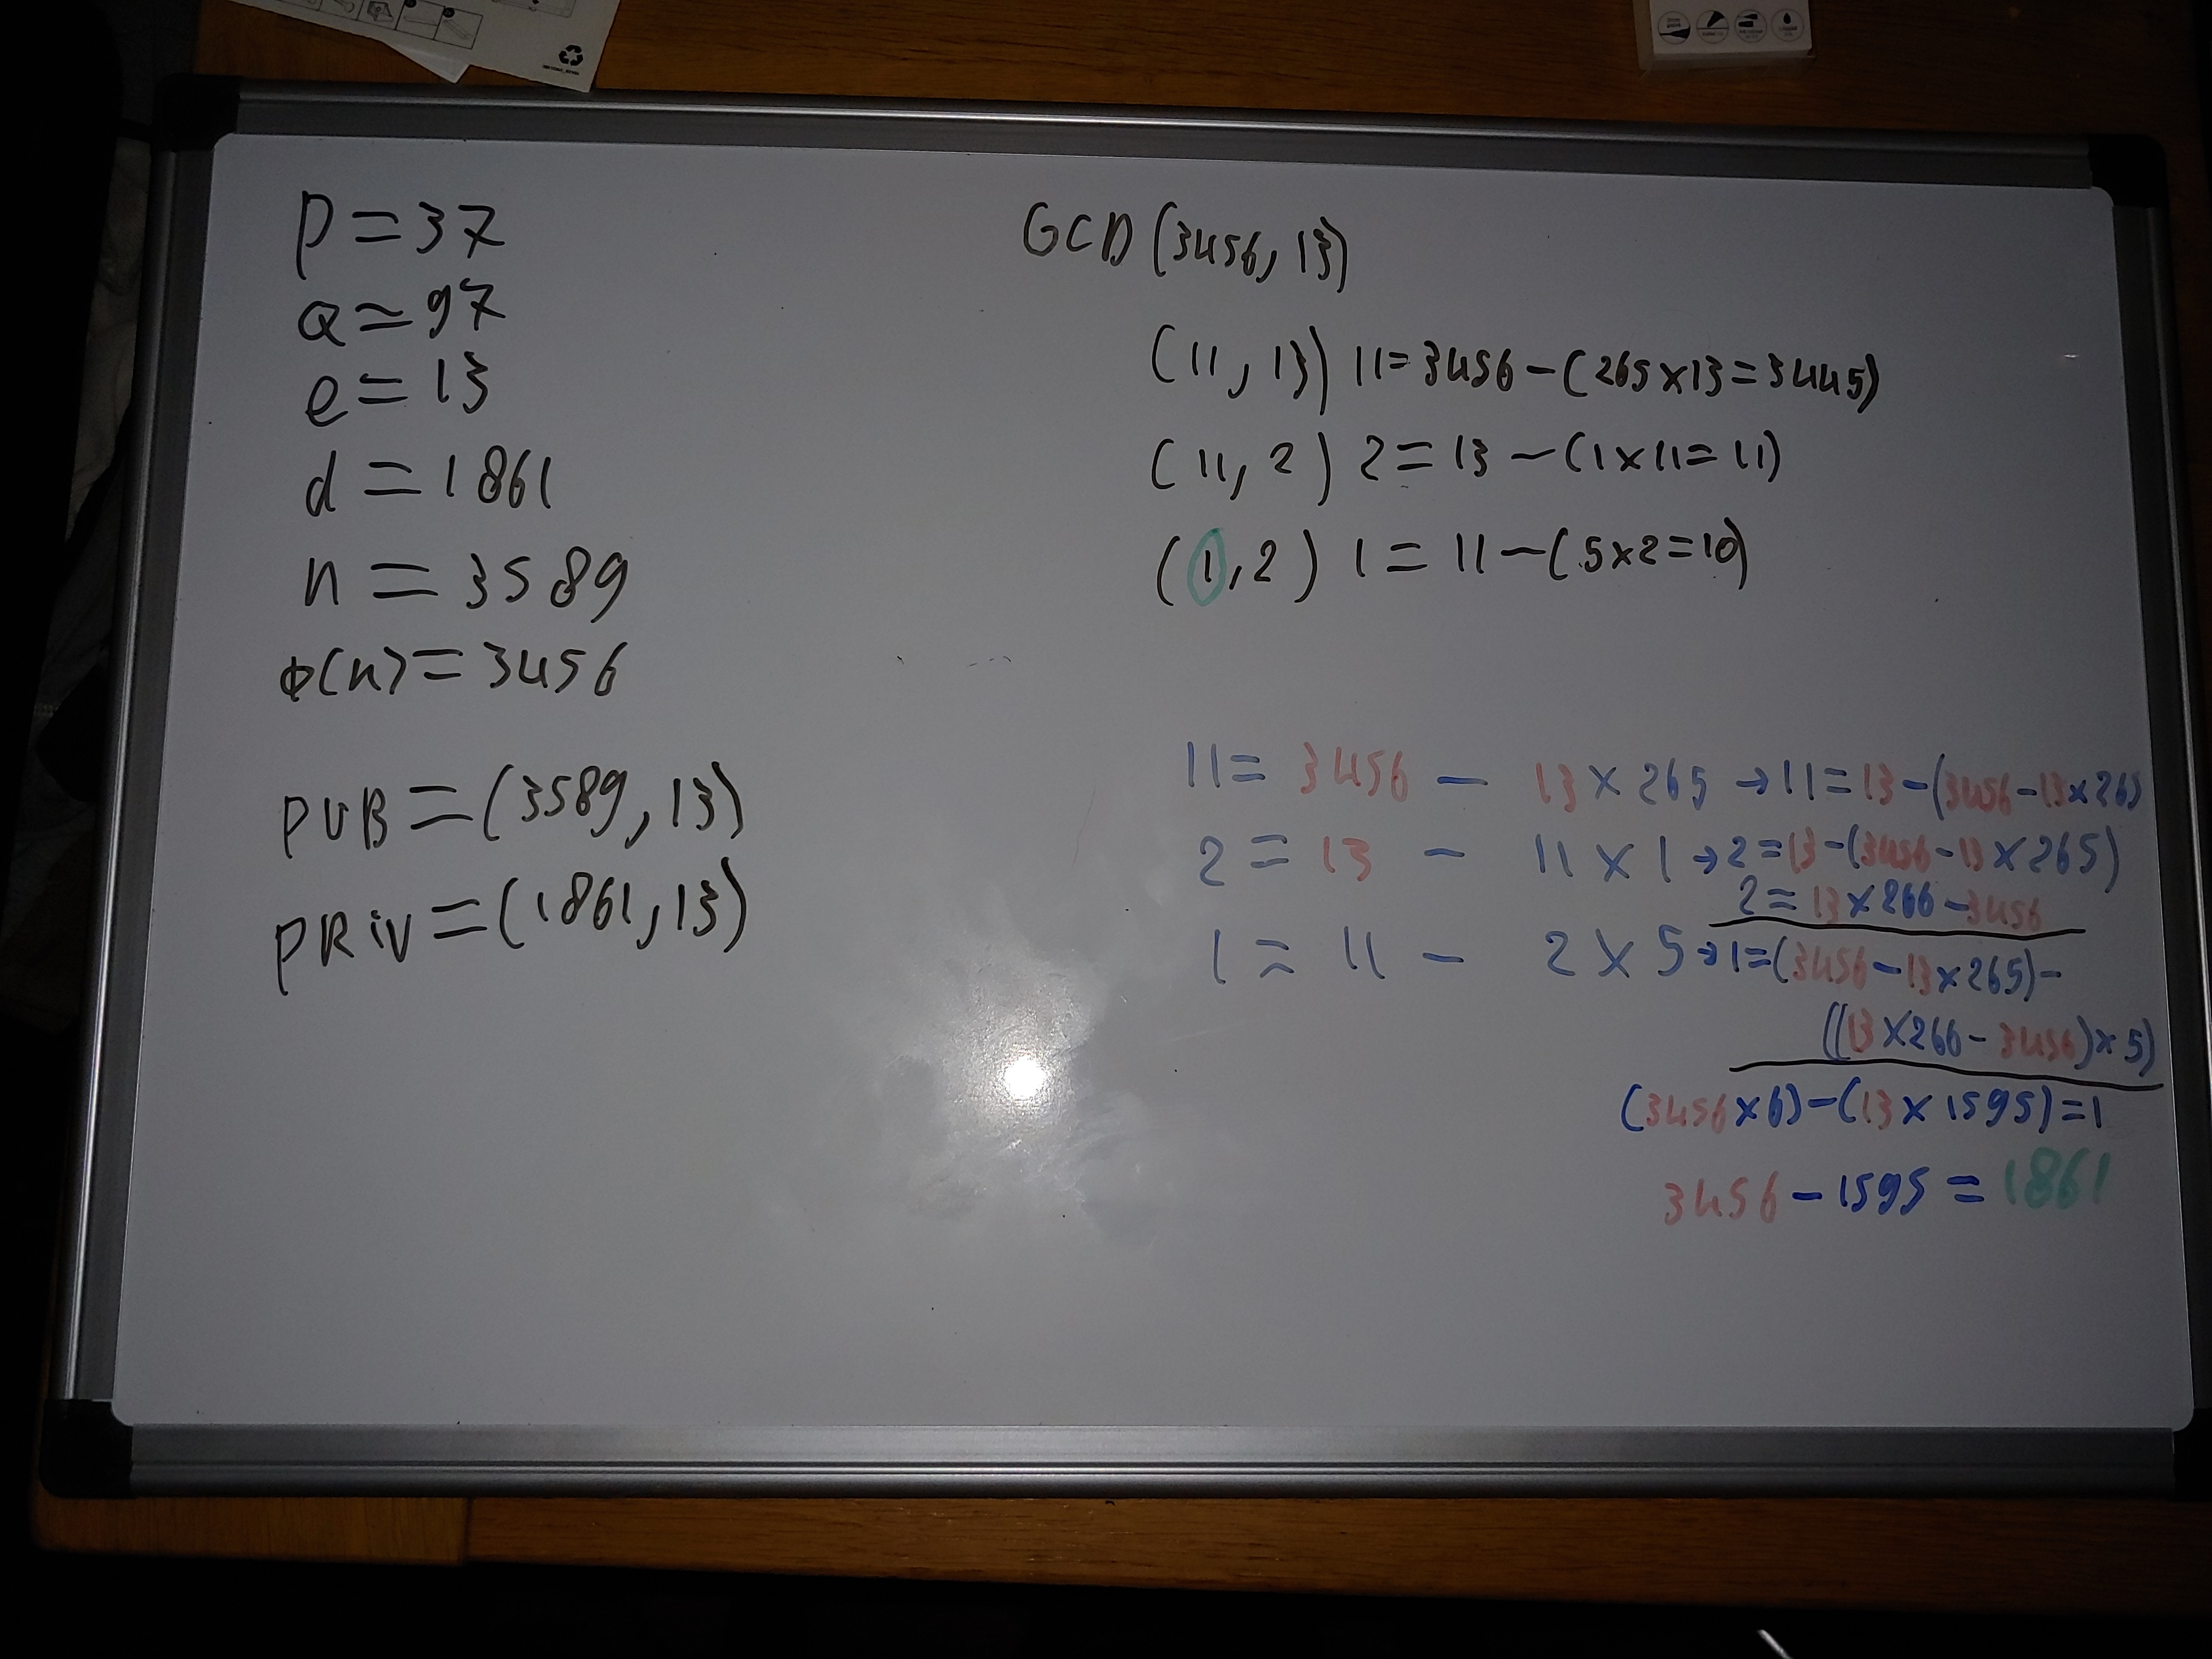 P=37
Q=97
e=13
d=1861
n=3589
φ(n)=3456
PUB=(3589,13)
PRiV=(1861,13)
GCD(3456,13)
(11,13) 11=3456-(265×13=3445)
(11,2) 2=13-(1×11=11)
(1,2) 1=11-(5×2=10)
11=3456-13×265→11=13-(3456-13×265
2=13-11×1→2=13-(3456-13×265)
2=13×266-3456
1=11-2×5→1=(3456-13×265)-
((13×266-3456)×5)
(3456×6)-(13×1595)=1
3456-1595=1861